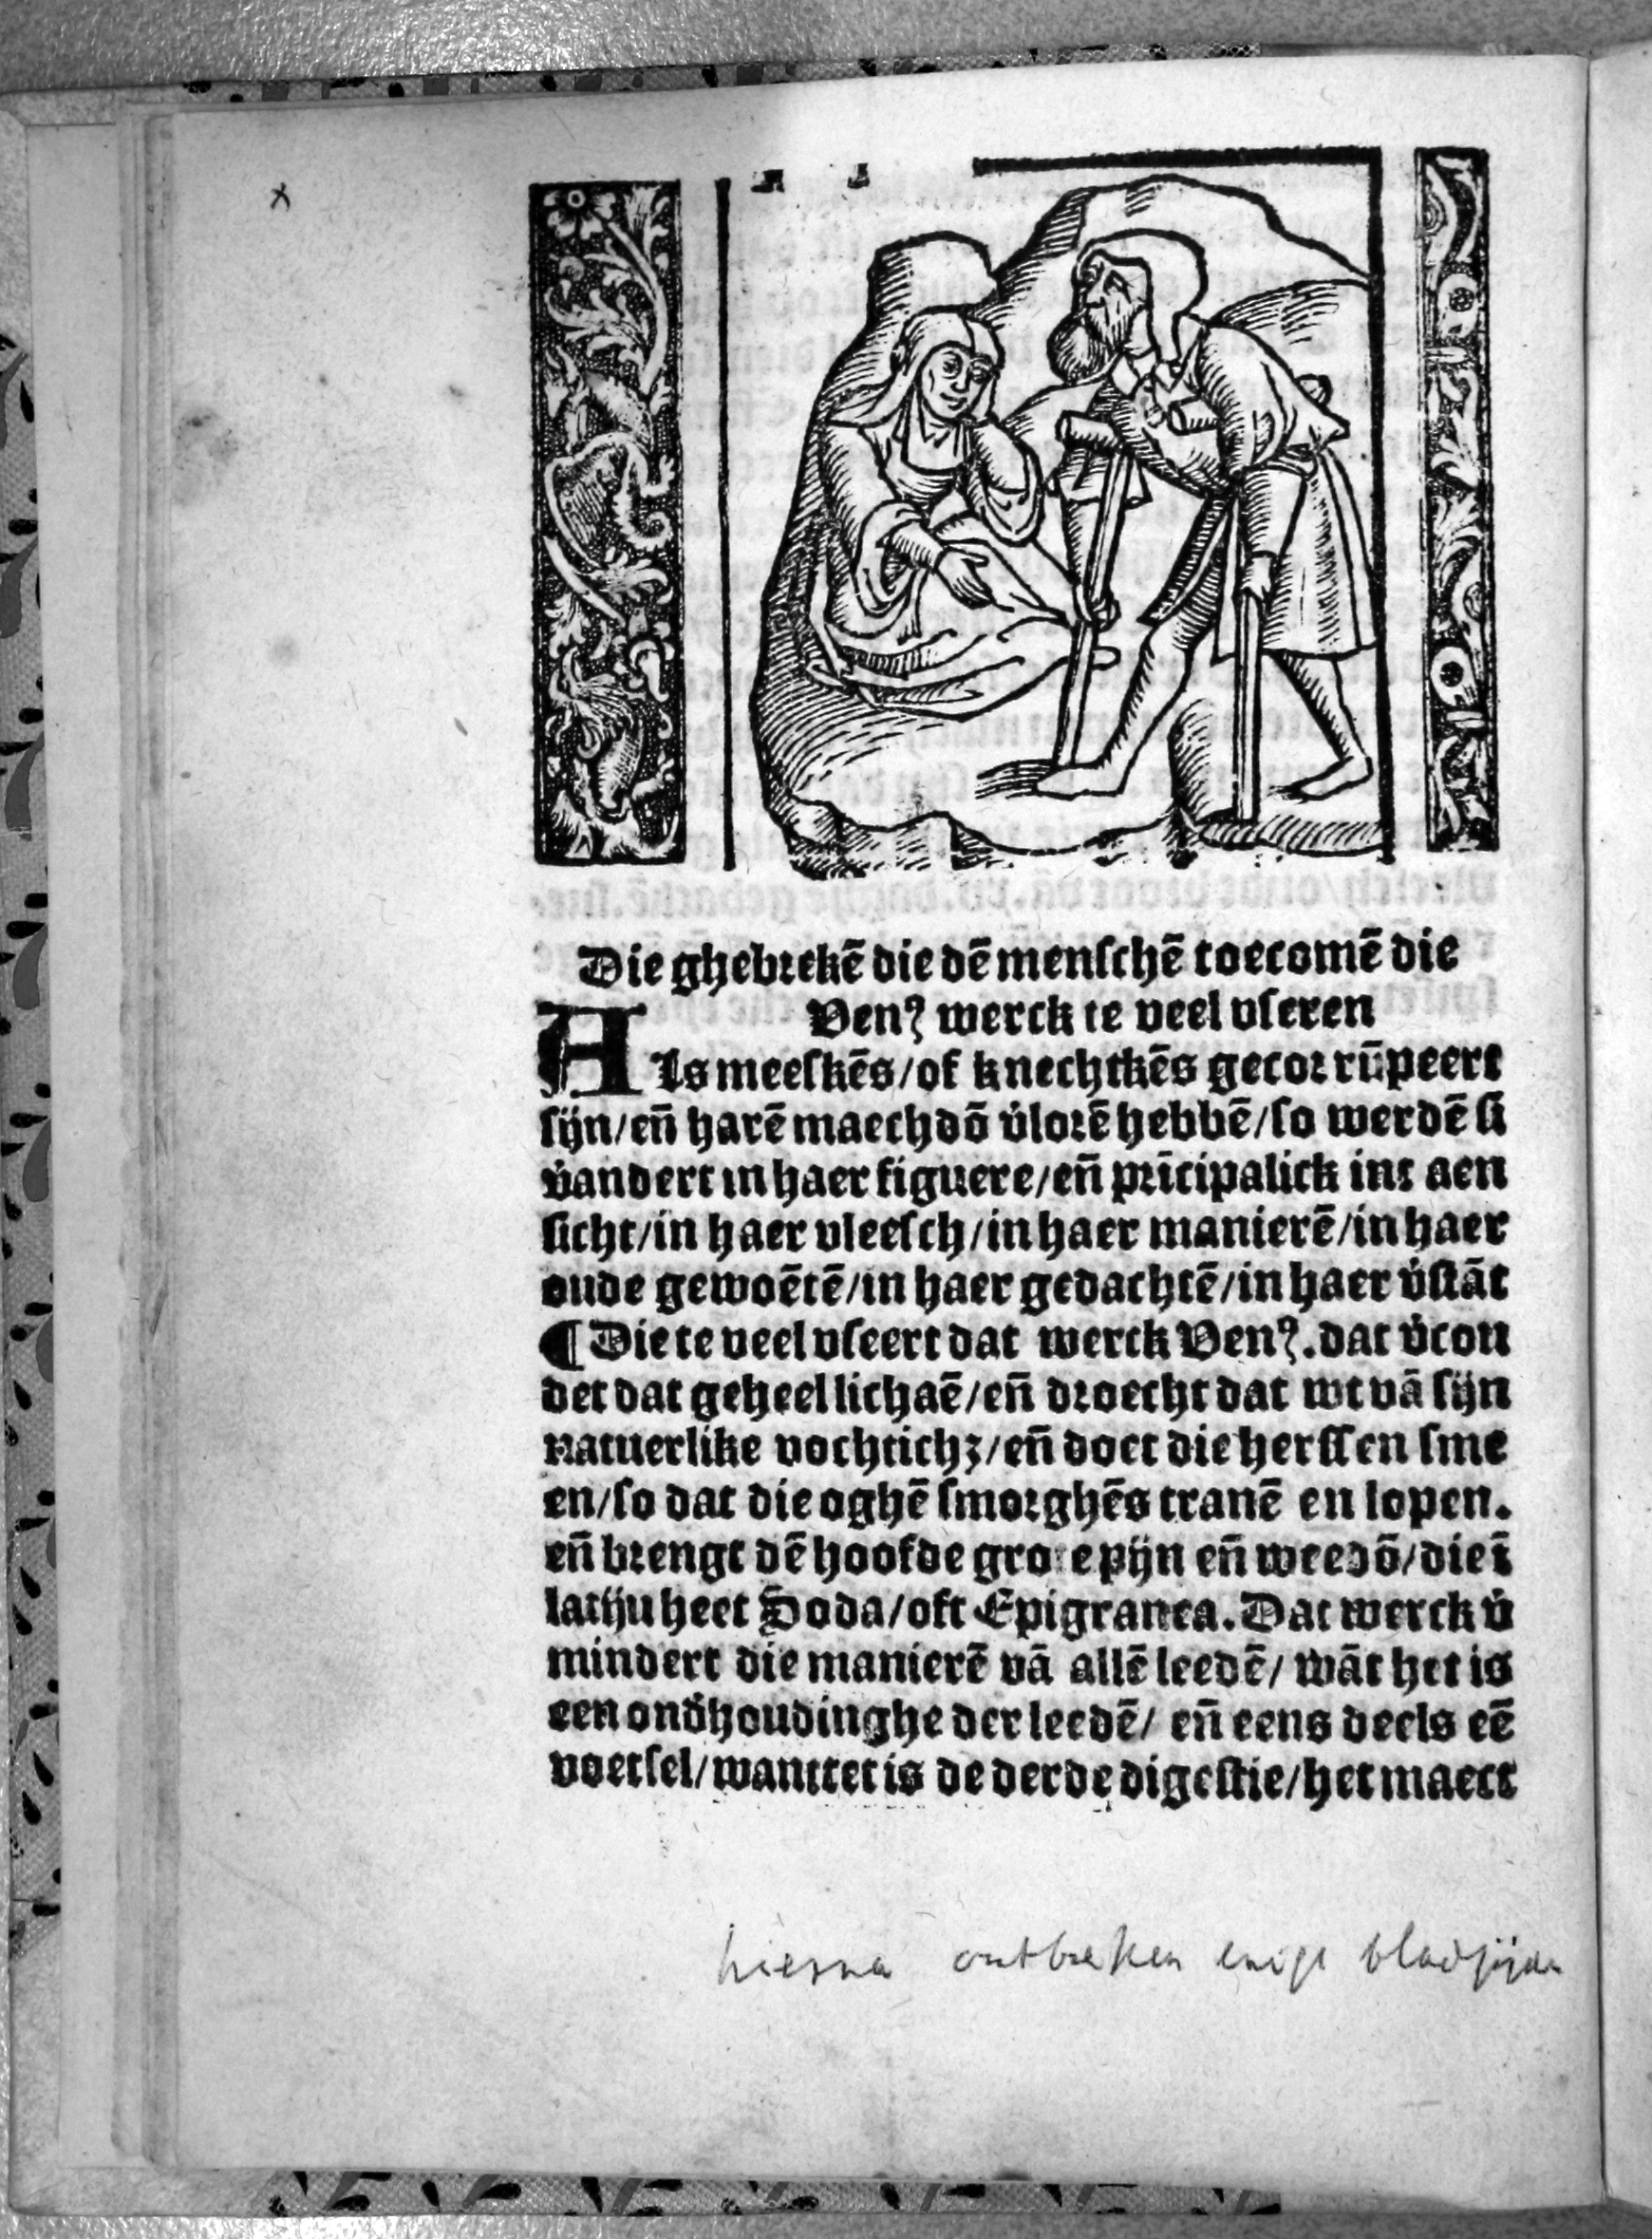 x
Die ghebrekē die dē menschē toecomē die
Venꝰ werck te veel vseren
Als meeskēs/of knechtkēs gecorrūpeert
sijn/en̄ harē maechdō v̓lorē hebbē/so werdē si
v̓andert in haer figuere/en̄ prīcipalick int aen
sicht/in haer vleesch/in haer manierē/in haer
oude gewoētē/in haer gedachtē/in haer v̓stāt
¶ Die te veel vseert dat werck Venꝰ. dat v̓con
det dat geheel lichaē/en̄ droecht dat wt vā sijn
natuerlike vochtichꝫ/en̄ doet die herssen sme
en/so dat die oghē smorghēs tranē en lopen.
en̄ brengt dē hoofde grote pijn en̄ weedō/die ī
latiju heet Soda/oft Epigranea. Dat werck v̓
mindert die manierē vā allē leedē/ wāt het is
een ond̓houdinghe der leedē/ en̄ eens deels eē
voetsel/wanttet is de derde digestie/het maect
hierna ontbreken enige bladzijden